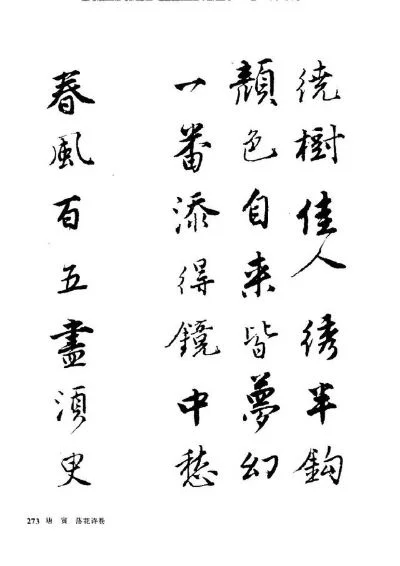 绕樹佳人绣半鈎
顏色自来皆夢幻
一番添得鏡中愁
春風百五盡須史
273 唐 寅 落花诗卷